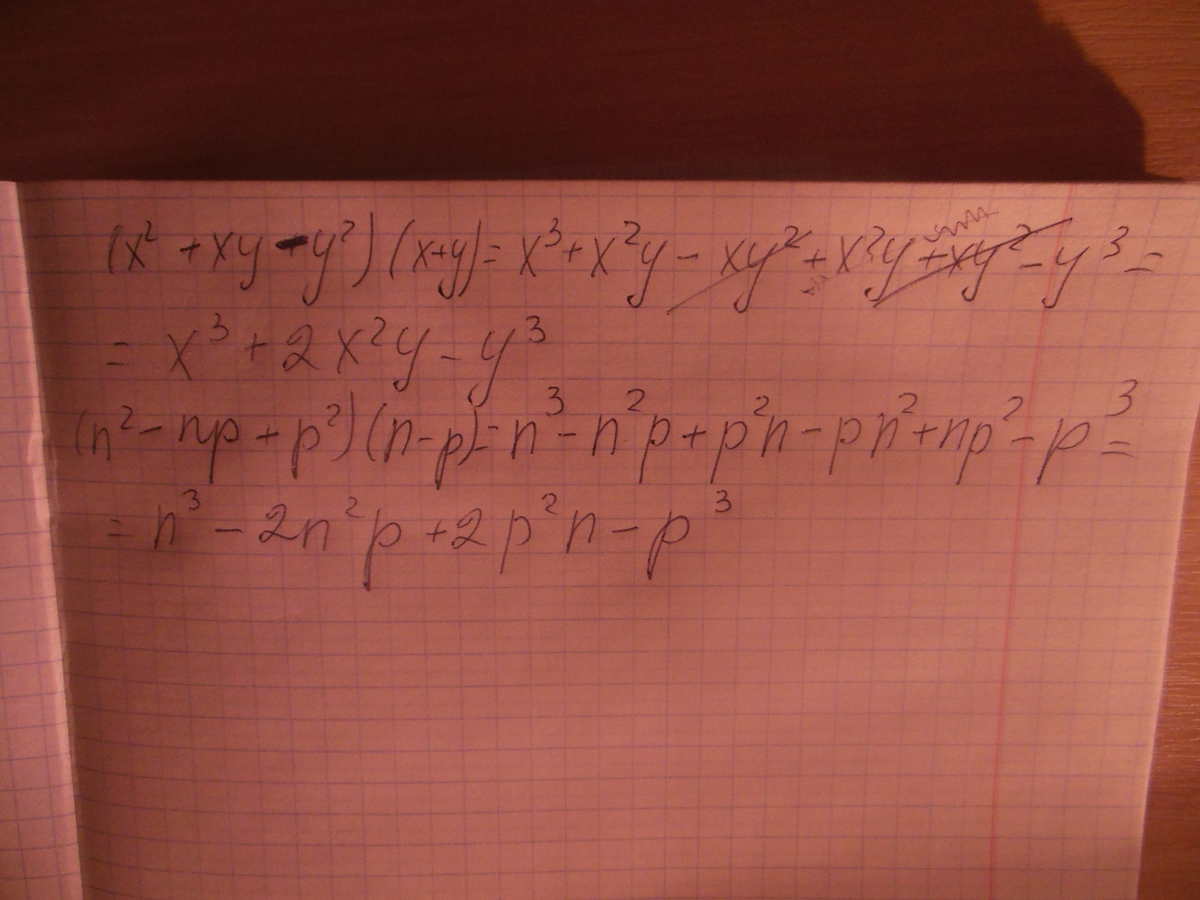 (x² + xy - y²) (x+y) = x³ + x²y - xy² + x²y + xy² - y³ =
= x³ + 2x²y - y³
(n² - np + p²) (n-p) = n³ - n²p + p²n - pn² + np² - p³ =
= n³ - 2n²p + 2p²n - p³